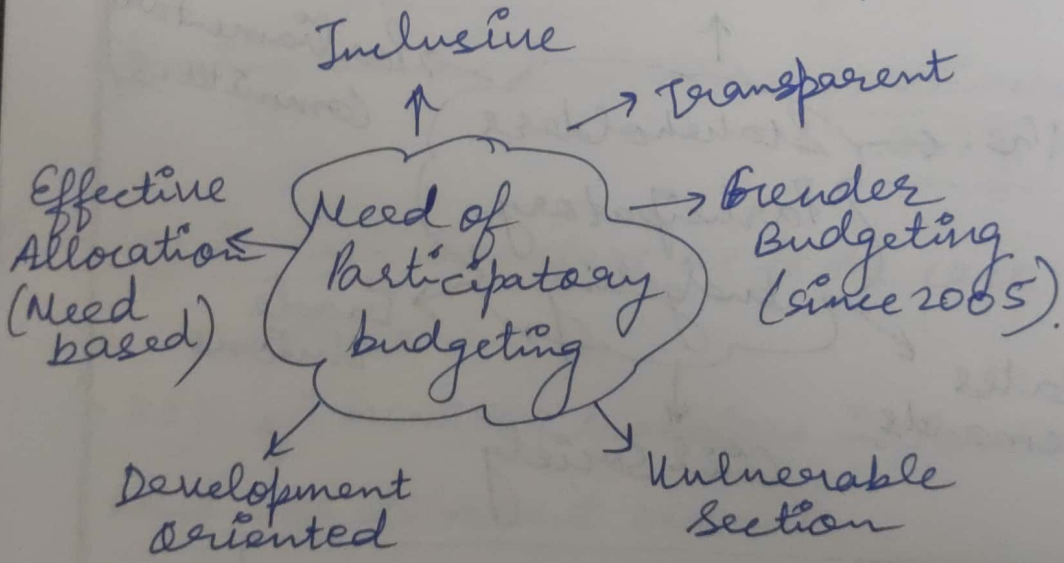 Inclusive
Transparent
Effective
Allocation
(Need
based)
Need of
Participatory
budgeting
Gender
Budgeting
(since 2005).
Development
oriented
Vulnerable
Section